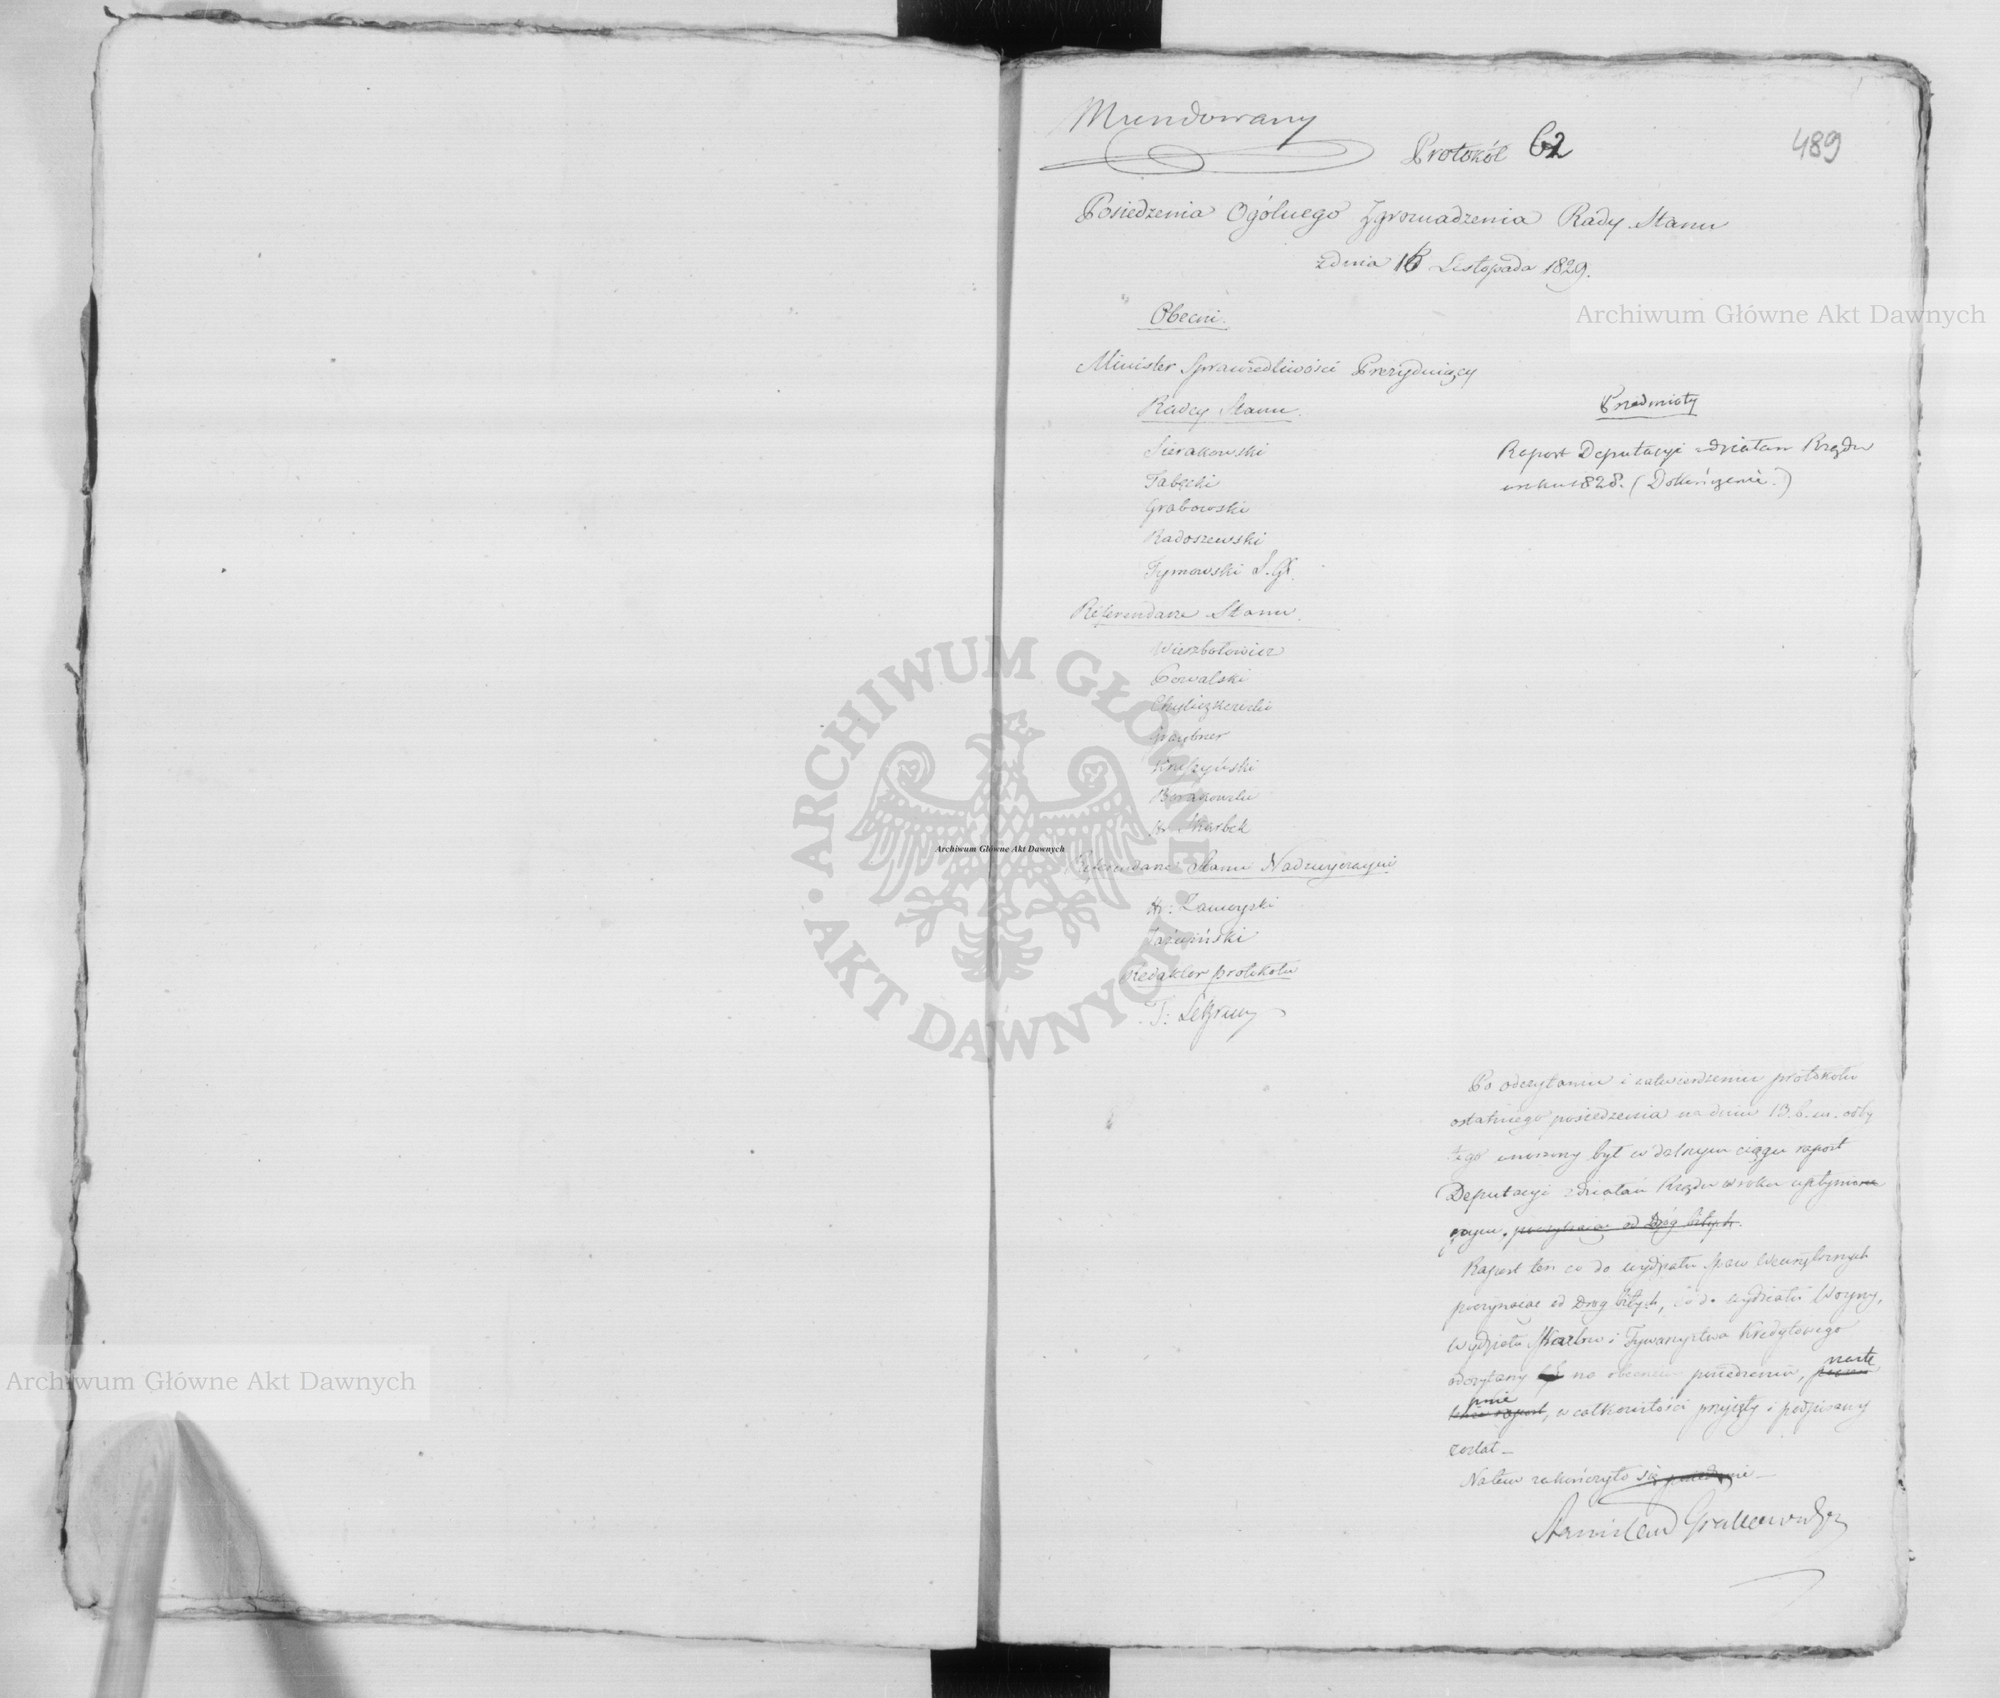 Mundowany
Protokół 62
489
Posiedzenia Ogólnego Zgromadzenia Rady Stanu
z dnia 16 Listopada 1829.
Obecni.
Minister Sprawiedliwości Prezydujący
Radcy Stanu.
Sierakowski
Tabęcki
Grabowski
Radoszewski
Tymowski S. G.
Referendarze Stanu.
Wierzbołowicz
Kowalski
Chyliczkowski
Kruszyński
Borakowski
Hr. Skarbek
Referendarze Stanu Nadzwyczajni
Hr: Zamoyski
Redaktor protokołu
T:
Przedmioty
Raport Deputacyi z działań Rządu
w roku 1828. (Dokończenie.)
Po odczytaniu i zatwierdzeniu protokołu
ostatniego posiedzenia na dniu 13. b. m. odby
tego wnoszony był w dalszym ciągu raport
Deputacyi z działań Rządu w roku upłynio
nym, poczynając od Dróg bitych.
Raport ten co do wydziału spraw Wewnętrznych
poczynając od Dróg bitych, co do wydziału Woyny,
wydziału Skarbu i Towarzystwa Kredytowego
odczytany na obecnem posiedzeniu, nastę
pnie w całkowitości przyjęty i podpisany
został –
Na tem zakończyło się posiedzenie –
Stanisław Grabowski
Archiwum Główne Akt Dawnych
Archiwum Główne Akt Dawnych
Archiwum Główne Akt Dawnych
ARCHIWUM GŁÓWNE AKT DAWNYCH